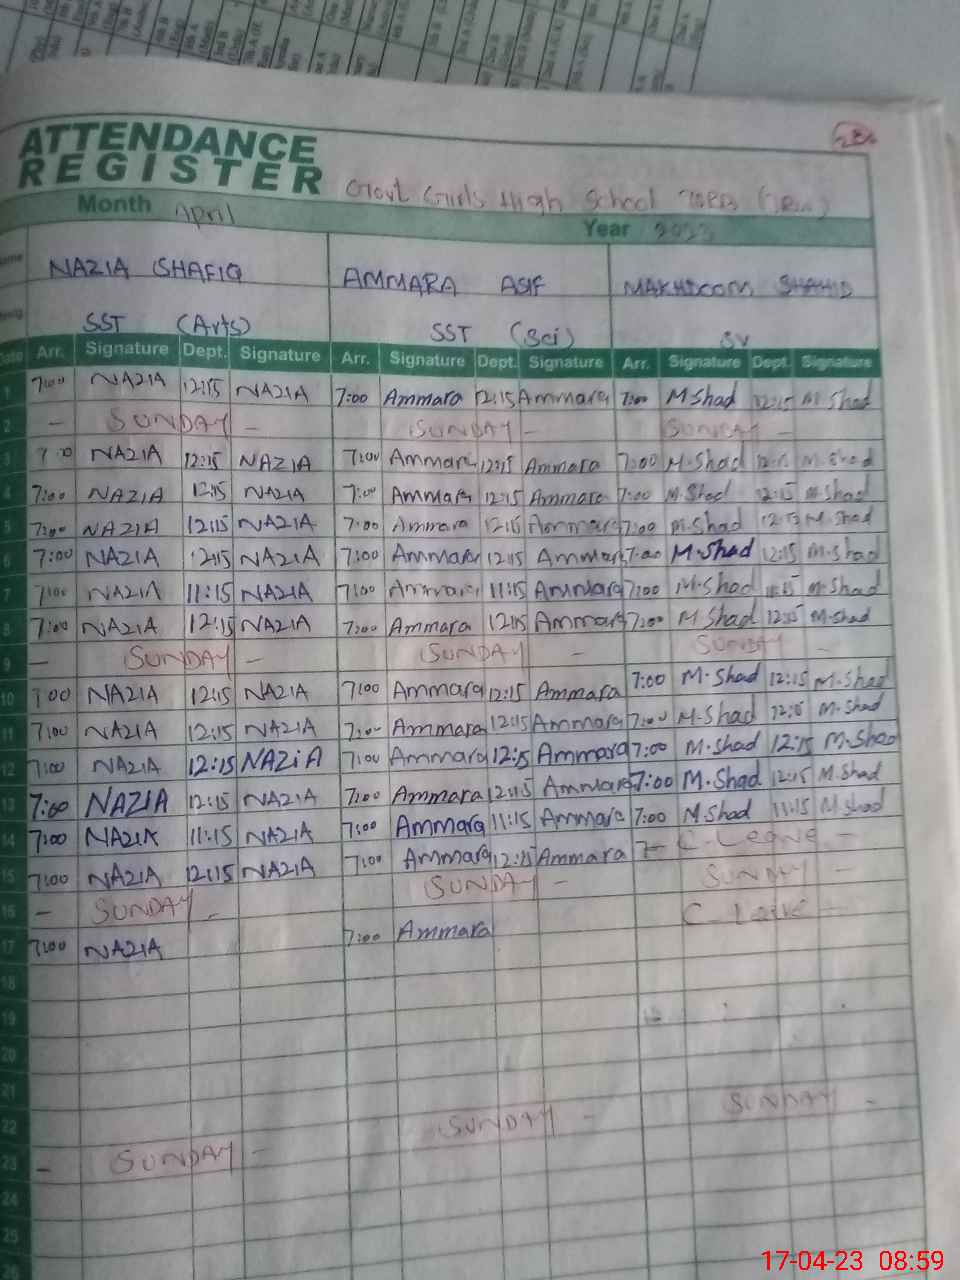 ATTENDANCE
REGISTER Govt Girls High School
Month April Year 2023
NAZIA SHAFIQ AMMARA ASIF MAKHDOOM SHAHID
SST (Arts) SST (Sci) SV
Date Arr. Signature Dept. Signature Arr. Signature Dept. Signature Arr. Signature Dept. Signature
1 7:00 NAZIA 12:15 NAZIA 7:00 Ammara 12:15 Ammara 7:00 M Shad 12:15 M. Shad
2 - SUNDAY - SUNDAY - SUNDAY -
3 7:00 NAZIA 12:15 NAZIA 7:00 Ammara 12:15 Ammara 7:00 M. Shad M. Shad
4 7:00 NAZIA 12:15 NAZIA 7:00 Ammara 12:15 Ammara 7:00 M. Shad 12:15 M. Shad
5 7:00 NAZIA 12:15 NAZIA 7:00 Ammara 12:15 Ammara 7:00 M. Shad 12:15 M. Shad
6 7:00 NAZIA 12:15 NAZIA 7:00 Ammara 12:15 Ammara 7:00 M. Shad 12:15 M. Shad
7 7:00 NAZIA 11:15 NAZIA 7:00 Ammara 11:15 Ammara 7:00 M. Shad 11:15 M. Shad
8 7:00 NAZIA 12:15 NAZIA 7:00 Ammara 12:15 Ammara 7:00 M Shad 12:15 M. Shad
9 - SUNDAY - SUNDAY - SUNDAY -
10 7:00 NAZIA 12:15 NAZIA 7:00 Ammara 12:15 Ammara 7:00 M. Shad 12:15 M. Shad
11 7:00 NAZIA 12:15 NAZIA 7:00 Ammara 12:15 Ammara 7:00 M. Shad 12:15 M. Shad
12 7:00 NAZIA 12:15 NAZiA 7:00 Ammara 12:15 Ammara 7:00 M. Shad 12:15 M. Shad
13 7:00 NAZIA 12:15 NAZIA 7:00 Ammara 12:15 Ammara 7:00 M. Shad 12:15 M. Shad
14 7:00 NAZIA 11:15 NAZIA 7:00 Ammara 11:15 Ammara 7:00 M. Shad 11:15 M Shad
15 7:00 NAZIA 12:15 NAZIA 7:00 Ammara 12:15 Ammara C-Leave -
16 - SUNDAY - SUNDAY - SUNDAY -
17 7:00 NAZIA 7:00 Ammara C-Leave -
18
19
20
21
22
23 - SUNDAY - SUNDAY - SUNDAY -
24
25
26
17-04-23 08:59